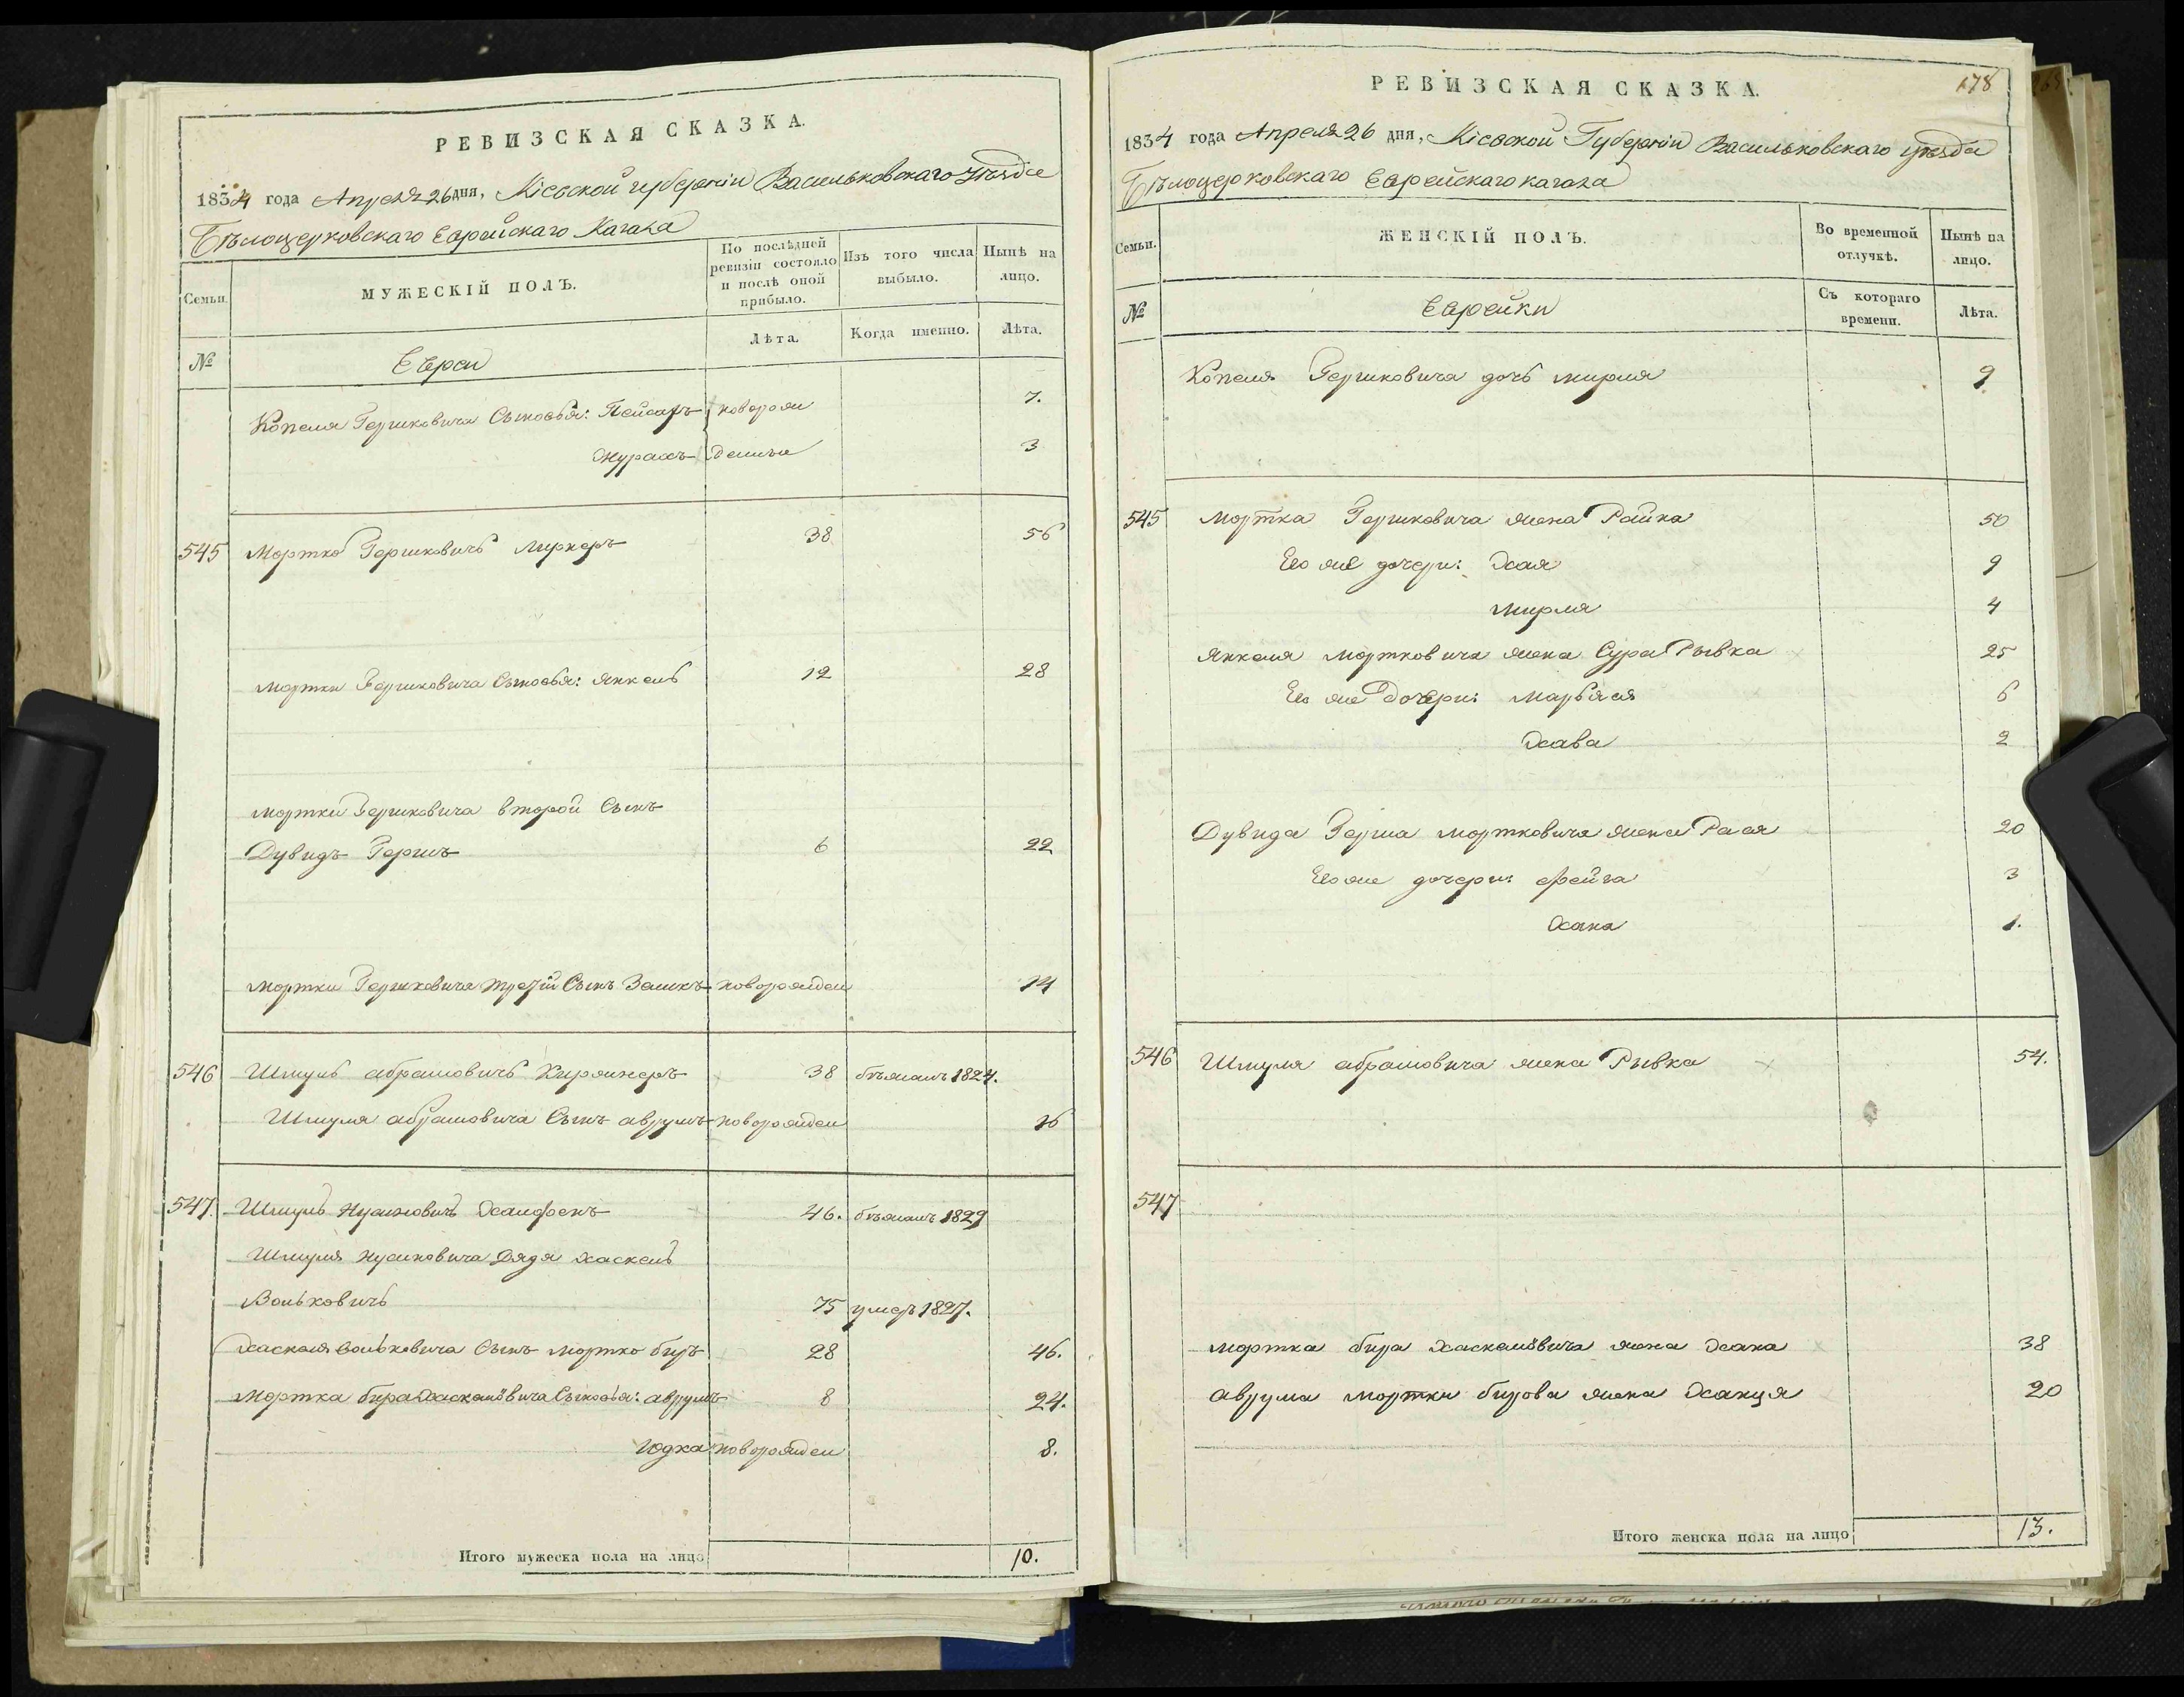 РЕВИЗСКАЯ СКАЗКА.
1834 года Апреля 26 дня, Кіевской губерніи Васильковскаго уѣзда
Бѣлоцерковскаго Еврейскаго Кагала
Семьи.
МУЖЕСКІЙ ПОЛЪ.
По послѣдней ревизіи состояло и послѣ оной прибыло.
Изъ того числа выбыло.
Нынѣ на лицо.
№
Евреи
Лѣта.
Когда именно.
Лѣта.
Копеля Гершковича Сыновья: Пейсахъ новорож 7.
денные 3
545 Мортко Гершковичъ 38 56
Мортки Гершковича Сыновья: Янкель 12 28
Мортки Гершковича второй Сынъ
Дувидъ Гершъ 6 22
Мортки Гершковича третій Сынъ новорожден 14
546 Шмуль Абрамовичъ 38 бѣжалъ 1824.
Шмуля Абрамовича Сынъ Аврумъ новорожден 16
547. Шмуль Нусиновичъ 46. бѣжалъ 1829
Шмуля Нусиновича Дядя Хаскель
Вольковичъ 75 умеръ 1827.
Хаскеля Вольковича Сынъ Мортко Биръ 28 46.
Мортка Бира Хаскелёвича Сыновья: Аврумъ 8 24.
Юдка новорожден 8.
Итого мужеска пола на лицо 10.
РЕВИЗСКАЯ СКАЗКА.
178
1834 года Апреля 26 дня, Кіевской Губерніи Васильковскаго уѣзда
Бѣлоцерковскаго Еврейскаго кагала
Семьи.
ЖЕНСКІЙ ПОЛЪ.
Во временной отлучкѣ.
Нынѣ на лицо.
№
Еврейки
Съ котораго времени.
Лѣта.
Копеля Гершковича дочь Мирля 9
545 Мортка Гершковича жена Райка 50
Его же дочери: Хая 9
Мирля 4
Янкеля Мортковича жена Сура Рывка 25
Его же Дочери: Марьяся 6
Хава 2
Дувида Герша Мортковича жена Рася 20
Его же дочери: Фейга 3
Хана 1.
546 Шмуля Абрамовича жена Рывка 54.
547
Мортка Бира Хаскелёвича жена Хана 38
Аврума Мортки Бирова жена Ханця 20
Итого женска пола на лицо 13.